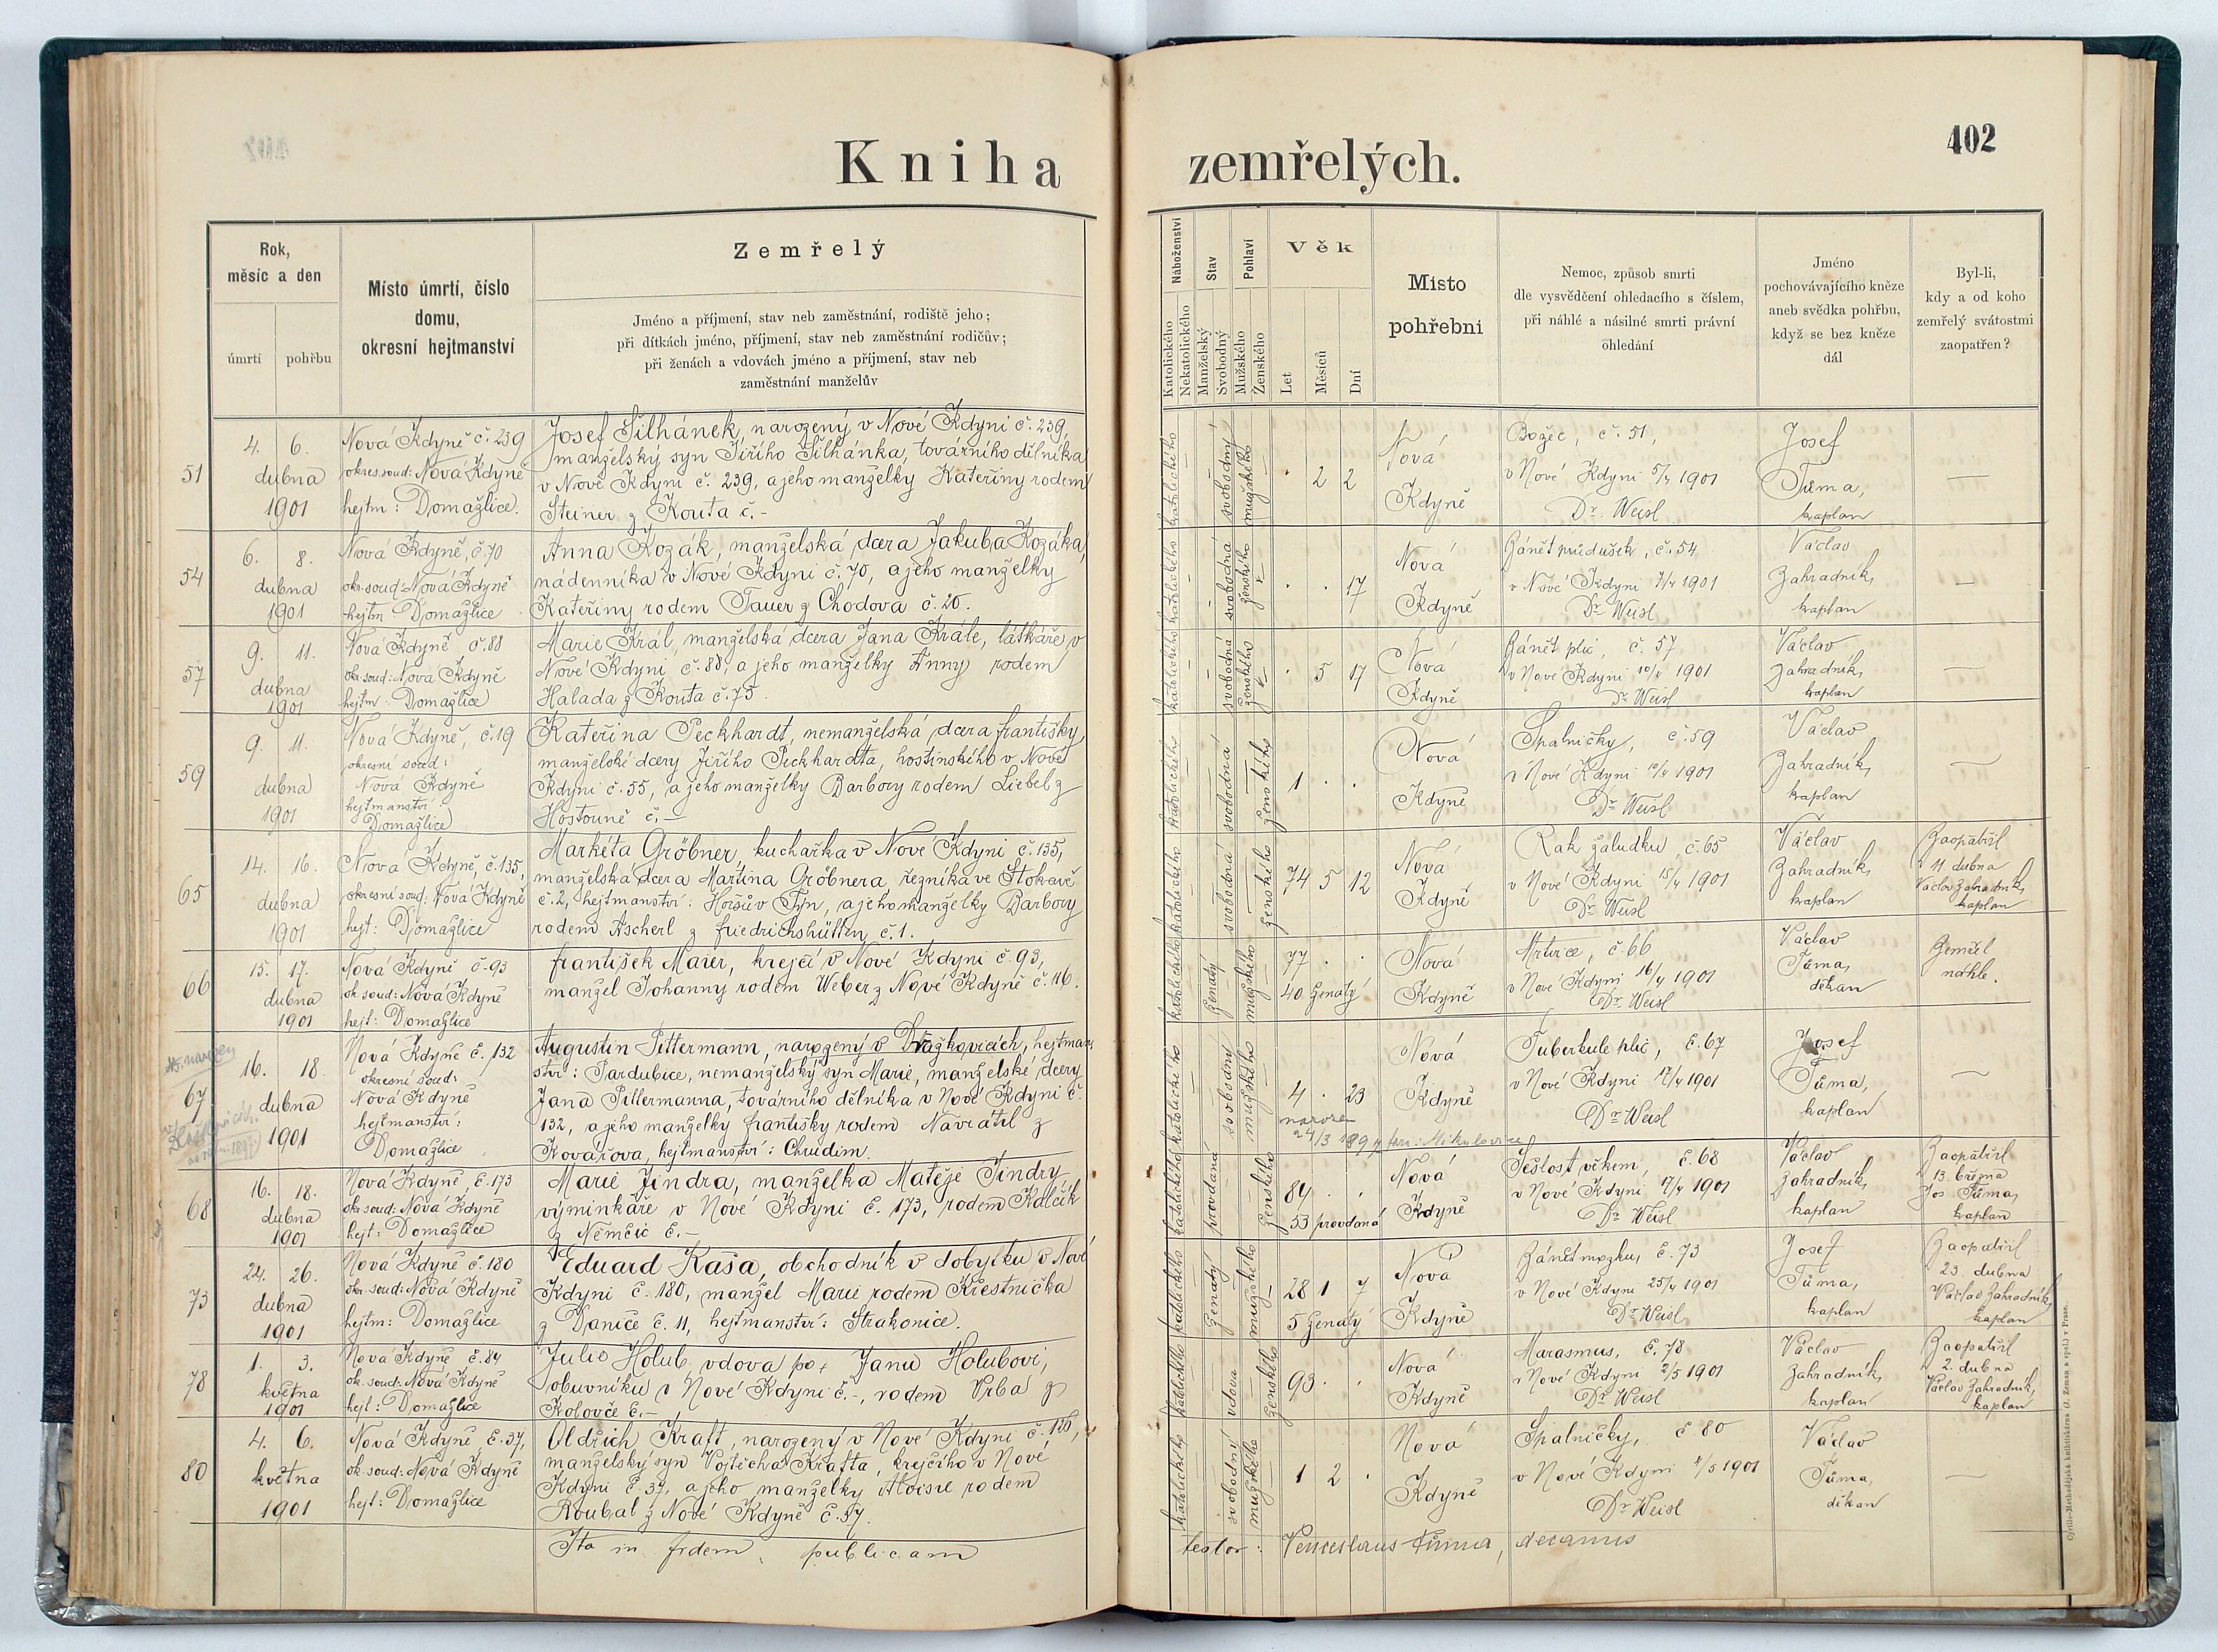 402
Kniha zemřelých.
Rok,
měsíc a den
úmrtí
pohřbu
Místo úmrtí, číslo
domu,
okresní hejtmanství
Zemřelý
Jméno a příjmení, stav neb zaměstnání, rodiště jeho;
při dítkách jméno, příjmení, stav neb zaměstnání rodičův;
při ženách a vdovách jméno a příjmení, stav neb
zaměstnání manželův
Náboženství
Katolického
Nekatolického
Stav
Manželský
Svobodný
Pohlaví
Mužského
Ženského
Věk
Let
Měsíců
Dní
Místo
pohřební
Nemoc, způsob smrti
dle vysvědčení ohledacího s číslem,
při náhlé a násilné smrti právní
ohledání
Jméno
pochovávajícího kněze
aneb svědka pohřbu,
když se bez kněze
dál
Byl-li,
kdy a od koho
zemřelý svátostmi
zaopatřen?
51
4. 6.
dubna
1901
Nová Kdyně č. 239
okres. soud: Nová Kdyně
hejtm: Domažlice.
Josef Šilhánek, narozený v Nové Kdyni č. 239,
manželský syn Jiřího Šilhánka, továrního dělníka
v Nové Kdyni č. 239, a jeho manželky Kateřiny rodem
Steiner z Kouta č. -
katolického
svobodný
mužského
. 2 2
Nová
Kdyně
Božec, č. 51,
v Nové Kdyni 5/4 1901
Dr. Weisl
Josef
Tůma,
kaplan
—
54
6. 8.
dubna
1901
Nová Kdyně, č. 70
okr. soud: Nová Kdyně
hejtm: Domažlice
Anna Kozák, manželská dcera Jakuba Kozáka,
nádenníka v Nové Kdyni č. 70, a jeho manželky
Kateřiny rodem Tauer z Chodova č. 20.
katolického
svobodná
ženského
. . 17
Nová
Kdyně
Zánět průdušek, č. 54
v Nové Kdyni 7/4 1901
Dr Weisl
Václav
Zahradník,
kaplan
—
57
9. 11.
dubna
1901
Nová Kdyně č. 88
okr. soud: Nová Kdyně
hejtm: Domažlice
Marie Král, manželská dcera Jana Krále, látkáře v
Nové Kdyni č. 88, a jeho manželky Anny rodem
Halada z Kouta č. 75.
katolického
svobodná
ženského
. 5 17
Nová
Kdyně
Zánět plic, č. 57
v Nové Kdyni 10/4 1901
Dr Weisl
Václav
Zahradník,
kaplan
—
59
9. 11.
dubna
1901
Nová Kdyně, č. 19
okresní soud:
Nová Kdyně
hejtmanství
Domažlice
Kateřina Peckhardt, nemanželská dcera Františky,
manželské dcery Jiřího Peckhardta, hostinského v Nové
Kdyni č. 55, a jeho manželky Barbory rodem Liebel z
Hostouně č. —
katolického
svobodná
ženského
1 . .
Nová
Kdyně
Spalničky, č. 59
v Nové Kdyni 10/4 1901
Dr Weisl
Václav
Zahradník,
kaplan
—
65
14. 16.
dubna
1901
Nová Kdyně, č. 135,
okresní soud: Nová Kdyně
hejt: Domažlice
Markéta Gröbner, kuchařka v Nové Kdyni č. 135,
manželská dcera Martina Gröbnera, řezníka ve Štokavě
č. 2, hejtmanství: Horšův Týn, a jeho manželky Barbory
rodem Ascherl z Friedrichshütten č. 1.
katolického
svobodná
ženského
74 5 12
Nová
Kdyně
Rak žaludku, č. 65
v Nové Kdyni 15/4 1901
Dr Weisl
Václav
Zahradník,
kaplan
Zaopatřil
11 dubna
Václav Zahradník,
kaplan
66
15. 17.
dubna
1901
Nová Kdyně č. 93
ok. soud: Nová Kdyně
hejt: Domažlice
František Maier, krejčí v Nové Kdyni č. 93,
manžel Johanny rodem Weber z Nové Kdyně č. 116.
katolického
ženatý
mužského
77 . .
40 ženatý
Nová
Kdyně
Mrtvice, č. 66
v Nové Kdyni 16/4 1901
Dr Weisl
Václav
Tůma,
děkan
Zemřel
náhle.
67
16. 18.
dubna
1901
Nová Kdyně č. 132
okresní soud:
Nová Kdyně
hejtmanství:
Domažlice
Augustin Pittermann, narozený v Dražkovicích, hejtman-
ství: Pardubice, nemanželský syn Marie, manželské dcery
Jana Pittermanna, továrního dělníka v Nové Kdyni č.
132, a jeho manželky Františky rodem Navrátil z
Kovářova, hejtmanství: Chrudim.
katolického
svobodný
mužského
4 . 23
narozen
24/3 1897 fara: Mikulovice
Nová
Kdyně
Tuberkule plic, č. 67
v Nové Kdyni 17/4 1901
Dr Weisl
Josef
Tůma,
kaplan
—
68
16. 18.
dubna
1901
Nová Kdyně, č. 173
okr. soud: Nová Kdyně
hejt: Domažlice
Marie Jindra, manželka Matěje Jindry,
výminkáře v Nové Kdyni č. 173, rodem Kalčík
z Němčic č. -
katolického
provdaná
ženského
84 . .
53 provdaná
Nová
Kdyně
Sešlost věkem, č. 68
v Nové Kdyni 17/4 1901
Dr Weisl
Václav
Zahradník,
kaplan
Zaopatřil
13. března
Jos. Tůma,
kaplan
73
24. 26.
dubna
1901
Nová Kdyně č. 180
okr. soud: Nová Kdyně
hejtm: Domažlice
Eduard Kaša, obchodník v dobytku v Nové
Kdyni č. 180, manžel Marie rodem Křestnička
z Daniče č. 11, hejtmanství: Strakonice.
katolického
ženatý
mužského
28 1 7
5 ženatý
Nová
Kdyně
Zánět mozku, č. 73
v Nové Kdyni 25/4 1901
Dr Weisl
Josef
Tůma,
kaplan
Zaopatřil
23. dubna
Václav Zahradník,
kaplan
78
1. 3.
května
1901
Nová Kdyně, č. 84
ok. soud: Nová Kdyně
hejt: Domažlice
Julie Holub, vdova po + Janu Holubovi,
obuvníku v Nové Kdyni č. -, rodem Vrba z
Kolovče č. -
katolického
vdova
ženského
93 . .
Nová
Kdyně
Marasmus, č. 78
v Nové Kdyni 2/5 1901
Dr Weisl
Václav
Zahradník,
kaplan
Zaopatřil
2. dubna
Václav Zahradník,
kaplan
80
4. 6.
května
1901
Nová Kdyně, č. 37,
ok. soud: Nová Kdyně
hejt: Domažlice
Oldřich Kraft, narozený v Nové Kdyni č. 126,
manželský syn Vojtěcha Krafta, krejčího v Nové
Kdyni č. 37, a jeho manželky Aloisie rodem
Roubal z Nové Kdyně č. 57.
katolického
svobodný
mužského
1 2 .
Nová
Kdyně
Spalničky, č. 80
v Nové Kdyni 4/5 1901
Dr Weisl
Václav
Tůma,
děkan
—
Ita in fidem publicam testor: Venceslaus Tůma, decanus
Cyrillo-Methodějská knihtiskárna (J. Zeman a spol.) v Praze.